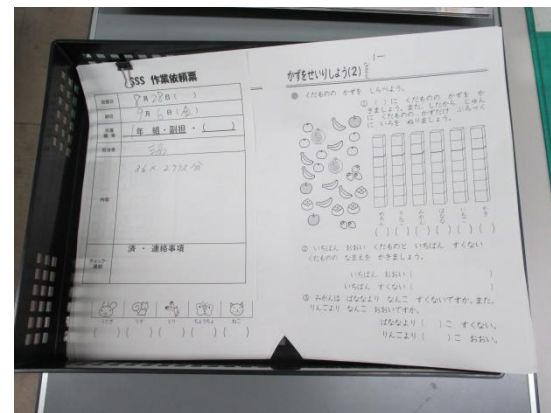 SSS 作業依頼票
8月28日( )
9月6日(金)
年 組・副担・( )
36×2クラス分
内容
済・連絡事項
チェック・連絡
うさぎ
りす
ちょうちょ
ねこ
かずをせいりしよう(2)
なまえ
くだものの かずを しらべよう。
① ( )に くだものの かずを か
きましょう。また、したから じゅん
に くだものの かずだけ ぶろっく
に いろを ぬりましょう。
② いちばん おおい くだものと いちばん すくない
くだものの なまえを かきましょう。
いちばん おおい( )
いちばん すくない( )
③ みかんは ばななより なんこ すくないですか。また、
りんごより なんこ おおいですか。
ばななより( )こ すくない。
りんごより( )こ おおい。